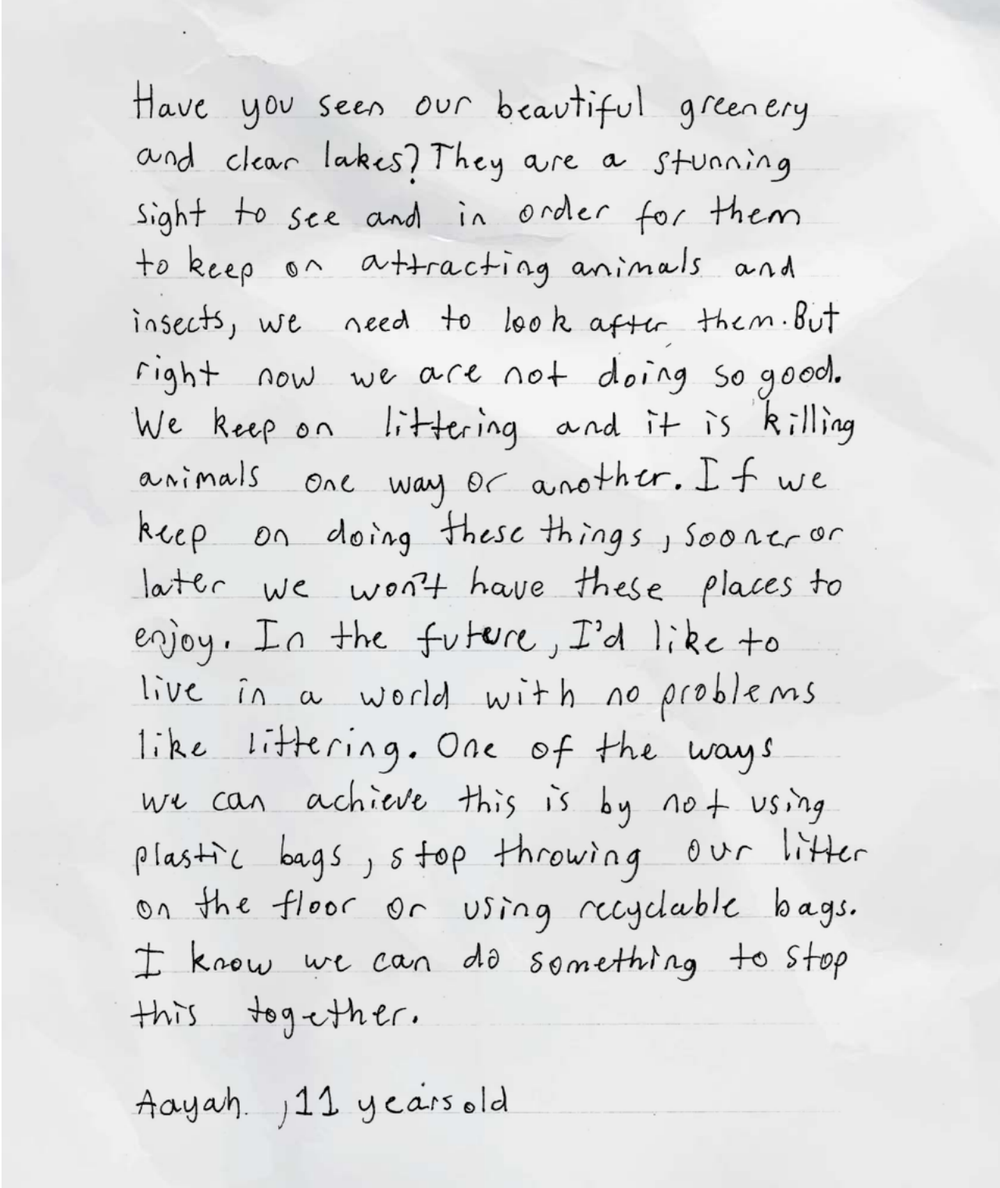 Have you seen our beautiful greenery
and clear lakes? They are a stunning
sight to see and in order for them
to keep on attracting animals and
insects, we need to look after them. But
right now we are not doing so good.
We keep on littering and it is killing
animals one way or another. If we
keep on doing these things, sooner or
later we won't have these places to
enjoy. In the future, I'd like to
live in a world with no problems
like littering. One of the ways
we can achieve this is by not using
plastic bags, stop throwing our litter
on the floor or using recyclable bags.
I know we can do something to stop
this together.
Aayah. ,11 years old